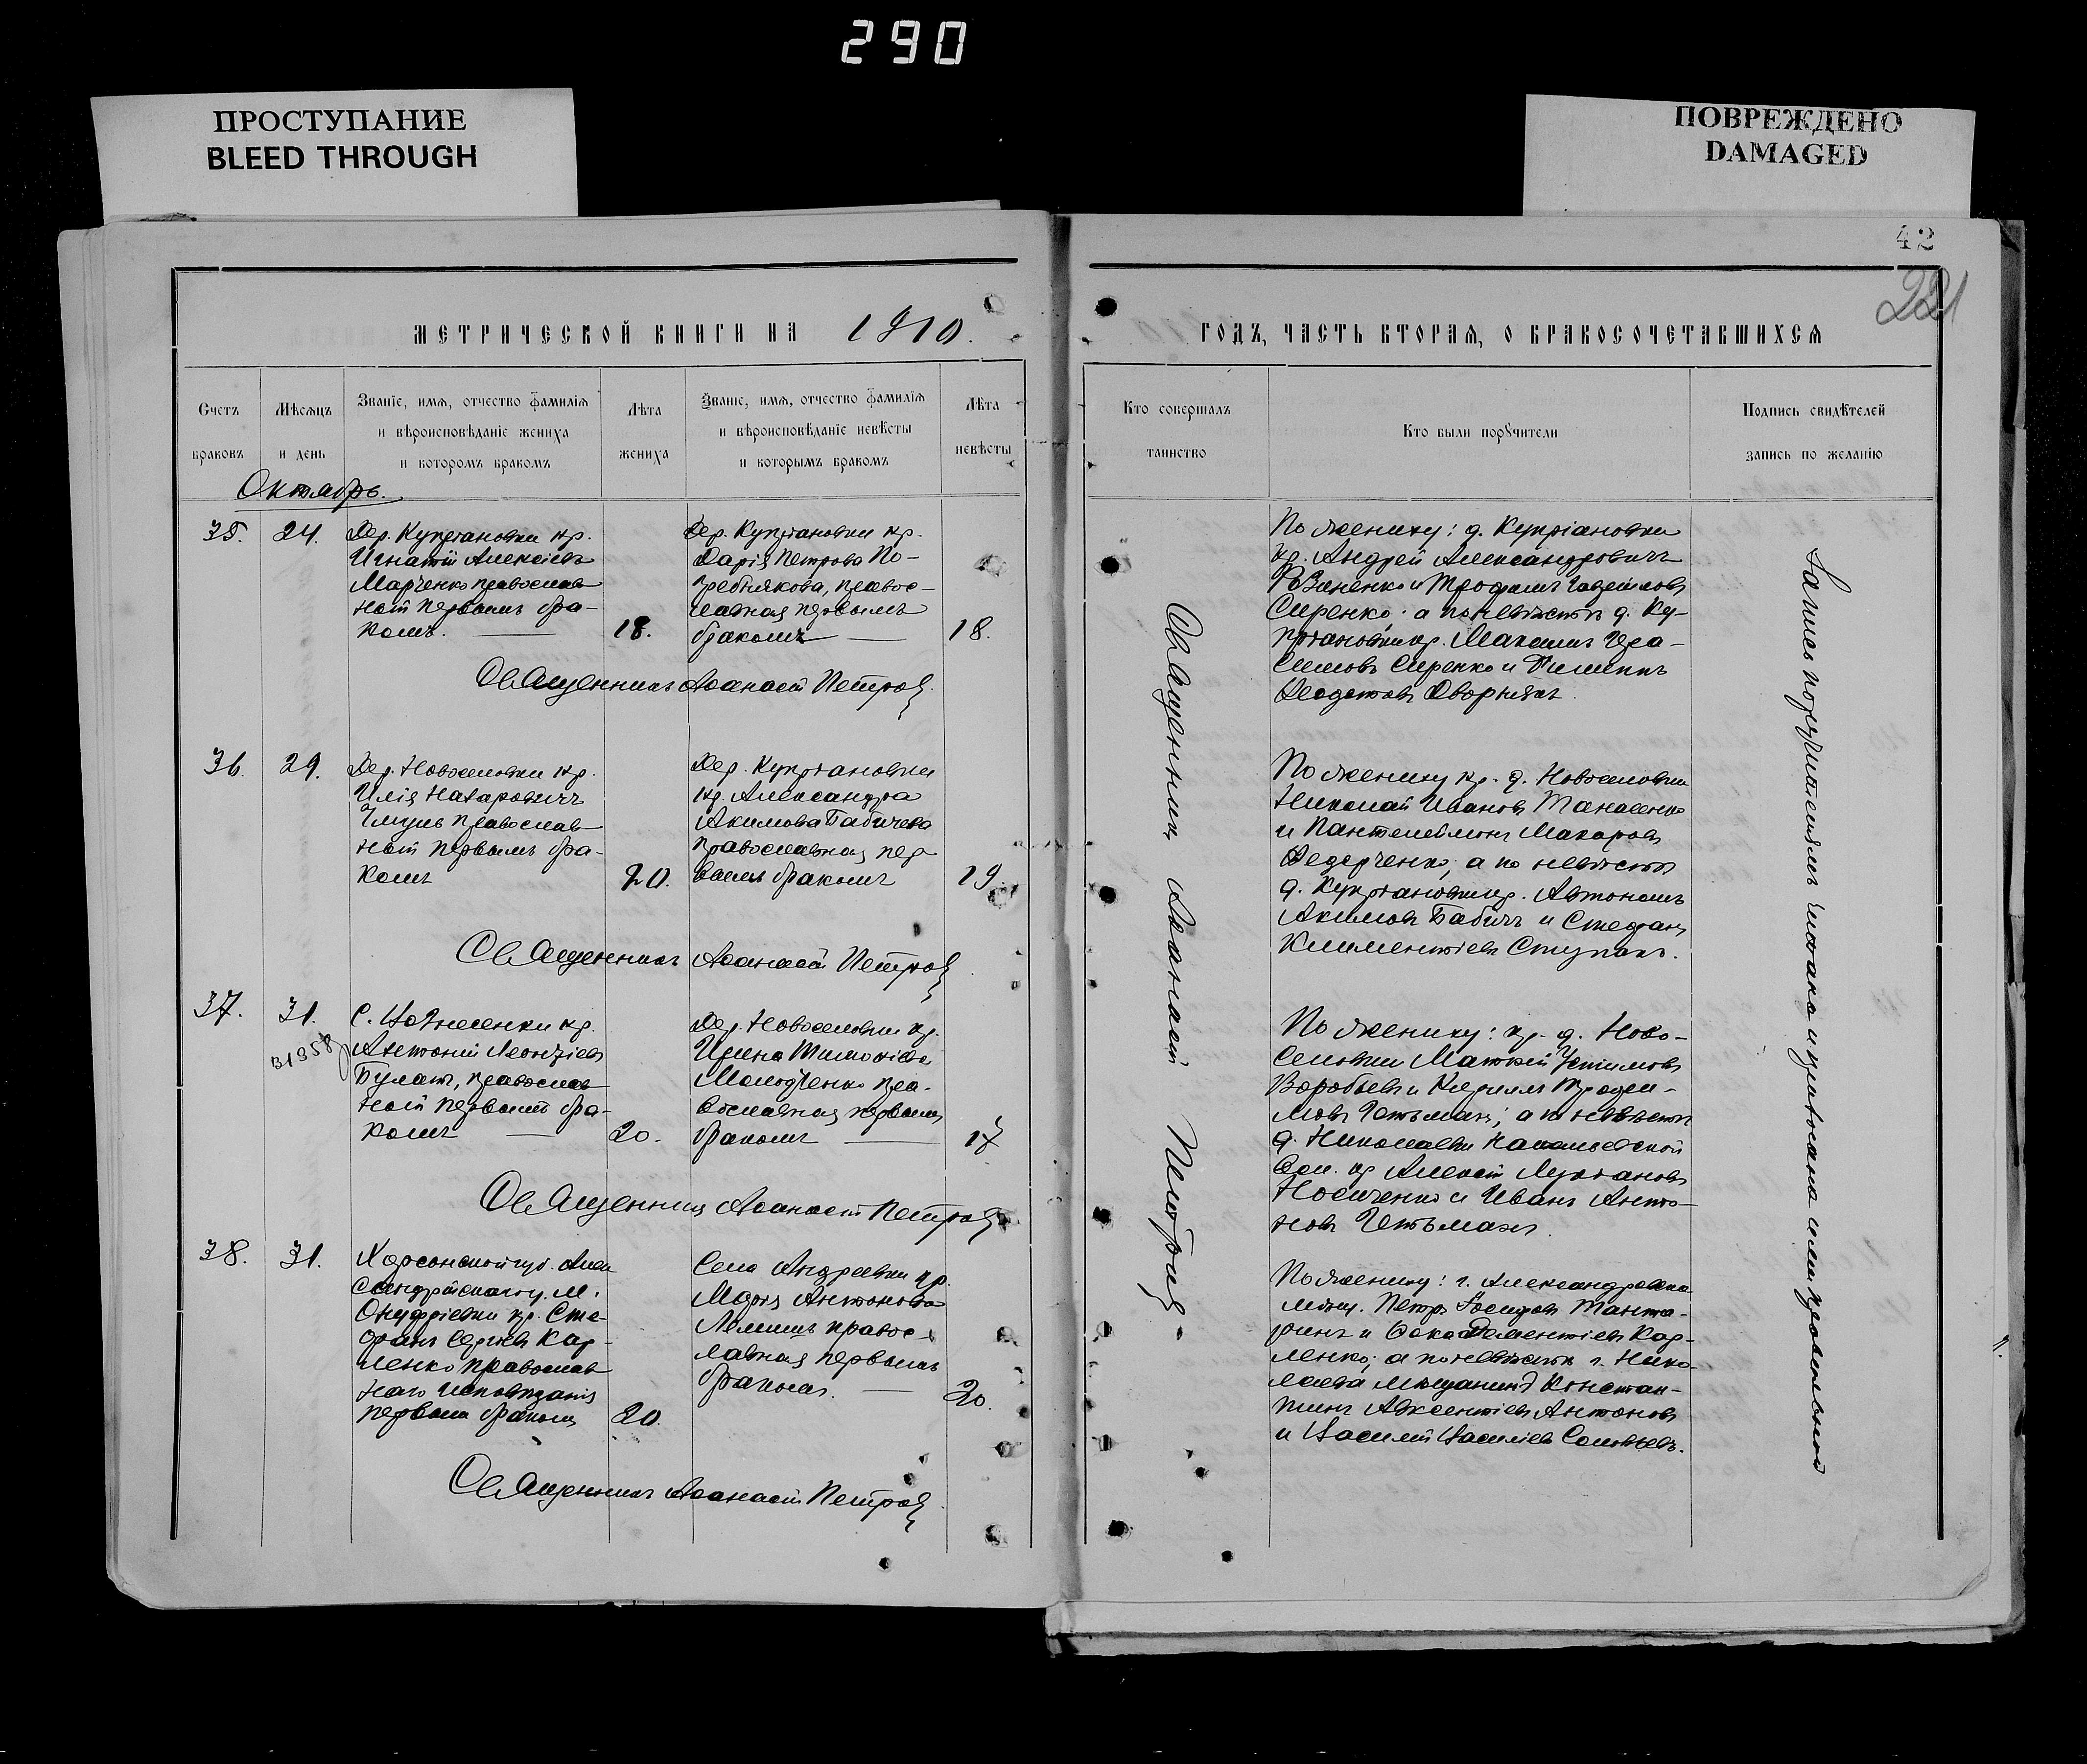 290
ПРОСТУПАНИЕ
BLEED THROUGH
ПОВРЕЖДЕНО
DAMAGED
42
221
МЕТРИЧЕСКОЙ КНИГИ НА 1910.
ГОДЪ, ЧАСТЬ ВТОРАЯ, О БРАКОСОЧЕТАВШИХСЯ
Счетъ
браковъ
Мѣсяцъ
и день
Званіе, имя, отчество фамилія
и вѣроисповѣданіе жениха
и которомъ бракомъ
Лѣта
жениха
Званіе, имя, отчество фамилія
и вѣроисповѣданіе невѣсты
и которымъ бракомъ
Лѣта
невѣсты
Кто совершалъ
таинство
Кто были порꙋчители
Подпись свидѣтелей
запись по желанію
Октябрь.
35.
24.
Дер. Купріановки кр.
Игнатій Алексіевъ
Марченко православ
ной первымъ бра-
комъ.
18.
Дер. Купріановки кр.
Дарія Петрова По-
гребнякова, правос-
лавная первымъ
бракомъ
18.
По жениху: д. Купріановки
кр. Андрей Александровичъ
и Трофимъ
Сиренко; а по невѣстѣ д. Ку-
пріановки кр. Максимъ Гера-
симовъ Сиренко и Филиппъ
Дворникъ.
Священникъ Аѳанасій Петров
36.
29.
Дер. Новоселовки кр.
Илія Назаровичъ
Чмуль православ-
ной первымъ бра-
комъ
20.
Дер. Купріановки
кр. Александра
Акимова Бабичева
православная пер
вымъ бракомъ
19.
По жениху кр. д. Новоселовки
Николай Ивановъ Танасенко
и Пантелеймонъ Макаровъ
Федорченко; а по невѣстѣ
д. Купріановки кр. Автономъ
Акимовъ Бабичъ и Стефанъ
Климентіевъ Ступакъ.
Священникъ Аѳанасій Петров
37.
31.
31958
С. Вознесенки кр.
Антоній Леонтіевъ
Булатъ, православ
ной первымъ бра-
комъ
20.
Дер. Новоселовки кр.
Ирина Тимоѳіева
Молодченко пра-
вославная первымъ
бракомъ
17
По жениху: кр. д. Ново-
селовки Матѳей Устимовъ
Воробьевъ и Кириллъ Трофи-
мовъ Гетьманъ; а по невѣстѣ
д. Николаевки
вол. кр Алексій Лукіановъ
Носиченко и Иванъ Анто-
новъ Гетьманъ.
Священникъ Аѳанасій Петров
38.
31.
Херсонской губ. Алек
сандрійскаго у. м.
Онуфріевки кр. Сте-
фанъ Сергіевъ Кар-
ленко православ
наго исповѣданія
первымъ бракомъ
20.
Села Андреевки кр.
Марія Антонова
Лемишъ правос-
лавная первымъ
бракомъ.
20.
По жениху: г. Александровска
мѣщ. Петръ Іосифовъ
и Дементіевъ Кар-
ленко; а по невѣстѣ г. Нико-
лаева мѣщанинъ Констан-
тинъ Авксентіевъ Антоновъ
и Василій Василіевъ Соловьевъ.
Священникъ Аѳанасій Петров
Священникъ Аѳанасій Петров
Запись поручителямъ читана и признана ими правильной